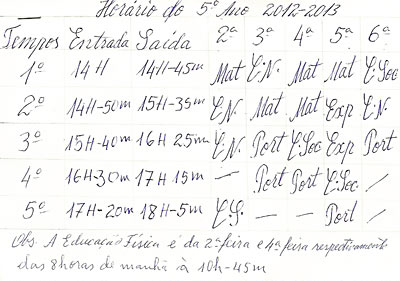 Horário do 5º Ano 2012-2013
Tempos Entrada Saída 2ª 3ª 4ª 5ª 6ª
1º 14H 14H-45m Mat C.N. Mat Mat C.Soc
2º 14H-50m 15H-35m C.N. Mat Mat Exp C.N.
3º 15H-40m 16H 25m C.N. Port C.Soc Exp Port
4º 16H-30m 17H 15m — Port Port C.Soc /
5º 17H-20m 18H-5m C.S. — — Port /
Obs. A Educação Física é da 2ª feira e 4ª feira respectivamente
das 8horas de manhã à 10h-45m